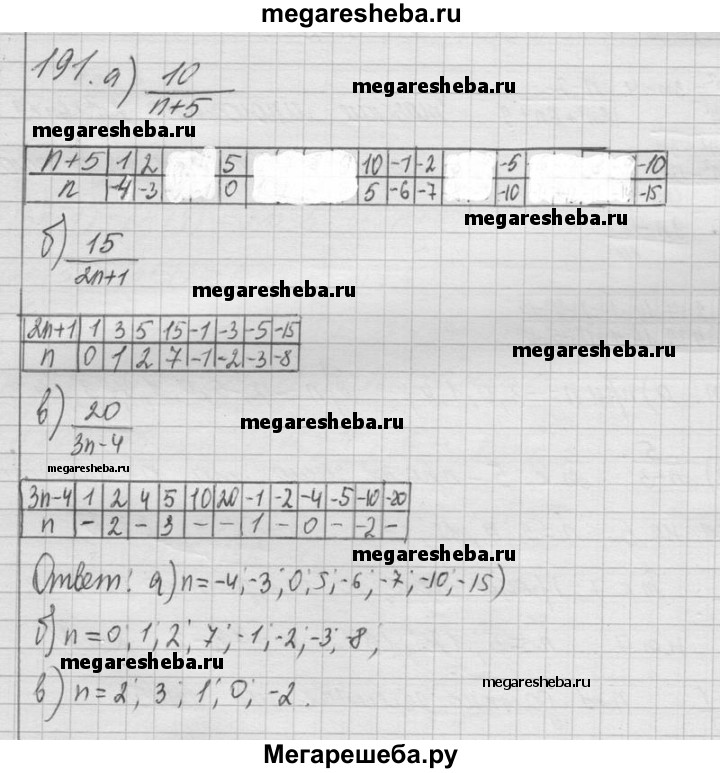 megaresheba.ru
191. а) 10/(n+5)
megaresheba.ru
megaresheba.ru
n+5 | 1 | 2 | 5 | 10 | -1 | -2 | -5 | -10
n | -4 | -3 | 0 | 5 | -6 | -7 | -10 | -15
megaresheba.ru
б) 15/(2n+1)
megaresheba.ru
2n+1 | 1 | 3 | 5 | 15 | -1 | -3 | -5 | -15
n | 0 | 1 | 2 | 7 | -1 | -2 | -3 | -8
megaresheba.ru
в) 20/(3n-4)
megaresheba.ru
megaresheba.ru
3n-4 | 1 | 2 | 4 | 5 | 10 | 20 | -1 | -2 | -4 | -5 | -10 | -20
n | - | 2 | - | 3 | - | - | 1 | - | 0 | - | -2 | -
megaresheba.ru
Ответ: а) n=-4; -3; 0; 5; -6; -7; -10; -15)
б) n=0; 1; 2; 7; -1; -2; -3; -8;
megaresheba.ru
megaresheba.ru
в) n=2; 3; 1; 0; -2.
Мегарешеба.ру